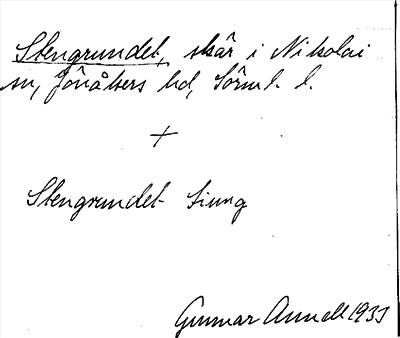 Stengrundet, skär i Nikolai
sn, Jönåkers hd, Sörml. l.
+
Stengrundet
Gunnar Annell 1933